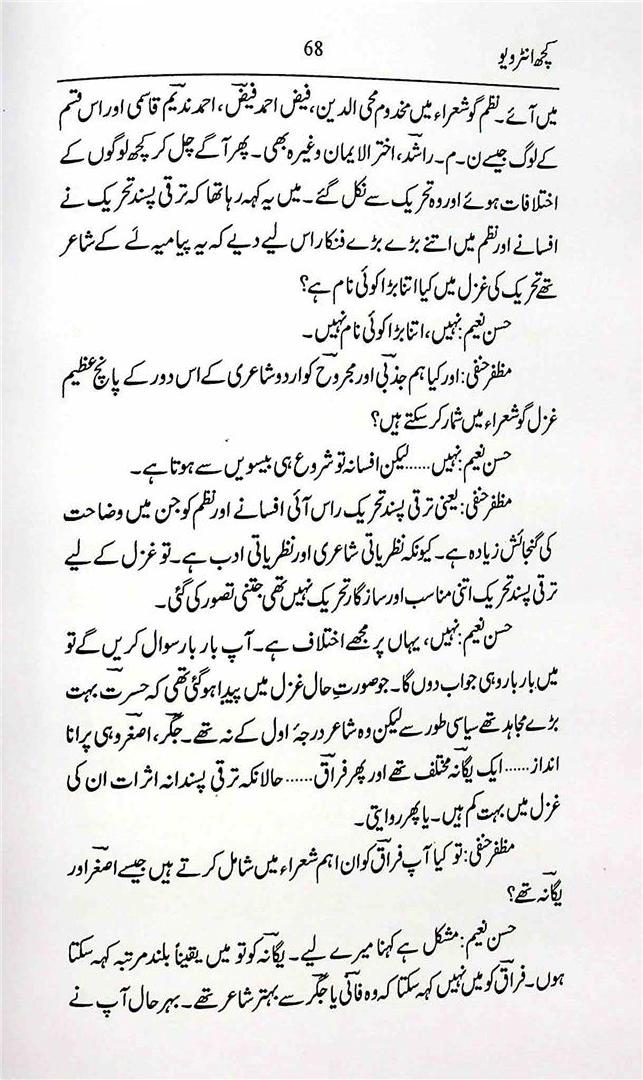 کچھ انٹرویو
68
میں آئے۔ نظم گو شعراء میں مخدوم محی الدین، فیض احمد فیضؔ، احمد ندیمؔ قاسمی اور اس قسم
کے لوگ جیسے ن۔م۔راشدؔ، اختر الایمان وغیرہ بھی۔ پھر آگے چل کر کچھ لوگوں کے
اختلافات ہوئے اور وہ تحریک سے نکل گئے۔ میں یہ کہہ رہا تھا کہ ترقی پسند تحریک نے
افسانے اور نظم میں اتنے بڑے بڑے فنکار اس لیے دیے کہ یہ پیامیہ لئے کے شاعر
تھے تحریک کی غزل میں کیا اتنا بڑا کوئی نام ہے؟
حسن نعیم: نہیں، اتنا بڑا کوئی نام نہیں۔
مظفر حنفی: اور کیا ہم جذبیؔ اور مجروحؔ کو اردو شاعری کے اس دور کے پانچ عظیم
غزل گو شعراء میں شمار کر سکتے ہیں؟
حسن نعیم: نہیں......لیکن افسانہ تو شروع ہی بیسویں سے ہوتا ہے۔
مظفر حنفی: یعنی ترقی پسند تحریک راس آئی افسانے اور نظم کو جن میں وضاحت
کی گنجائش زیادہ ہے۔ کیونکہ نظریاتی شاعری اور نظریاتی ادب ہے۔ تو غزل کے لیے
ترقی پسند تحریک اتنی مناسب اور سازگار تحریک نہیں تھی جتنی تصور کی گئی۔
حسن نعیم: نہیں، یہاں پر مجھے اختلاف ہے۔ آپ بار بار سوال کریں گے تو
میں بار بار وہی جواب دوں گا۔ جو صورتِ حال غزل میں پیدا ہو گئی تھی کہ حسرتؔ بہت
بڑے مجاہد تھے سیاسی طور سے لیکن وہ شاعر درجۂ اول کے نہ تھے۔ جگرؔ، اصغرؔ وہی پرانا
انداز......ایک یگانہؔ مختلف تھے اور پھر فراقؔ......حالانکہ ترقی پسندانہ اثرات ان کی
غزل میں بہت کم ہیں۔ یا پھر روایتی۔
مظفر حنفی: تو کیا آپ فراقؔ کو ان اہم شعراء میں شامل کرتے ہیں جیسے اصغرؔ اور
یگانہؔ تھے؟
حسن نعیم: مشکل ہے کہنا میرے لیے۔ یگانہؔ کو تو میں یقیناً بلند مرتبہ کہہ سکتا
ہوں۔ فراقؔ کو میں نہیں کہہ سکتا کہ وہ فانیؔ یا جگرؔ سے بہتر شاعر تھے۔ بہر حال آپ نے